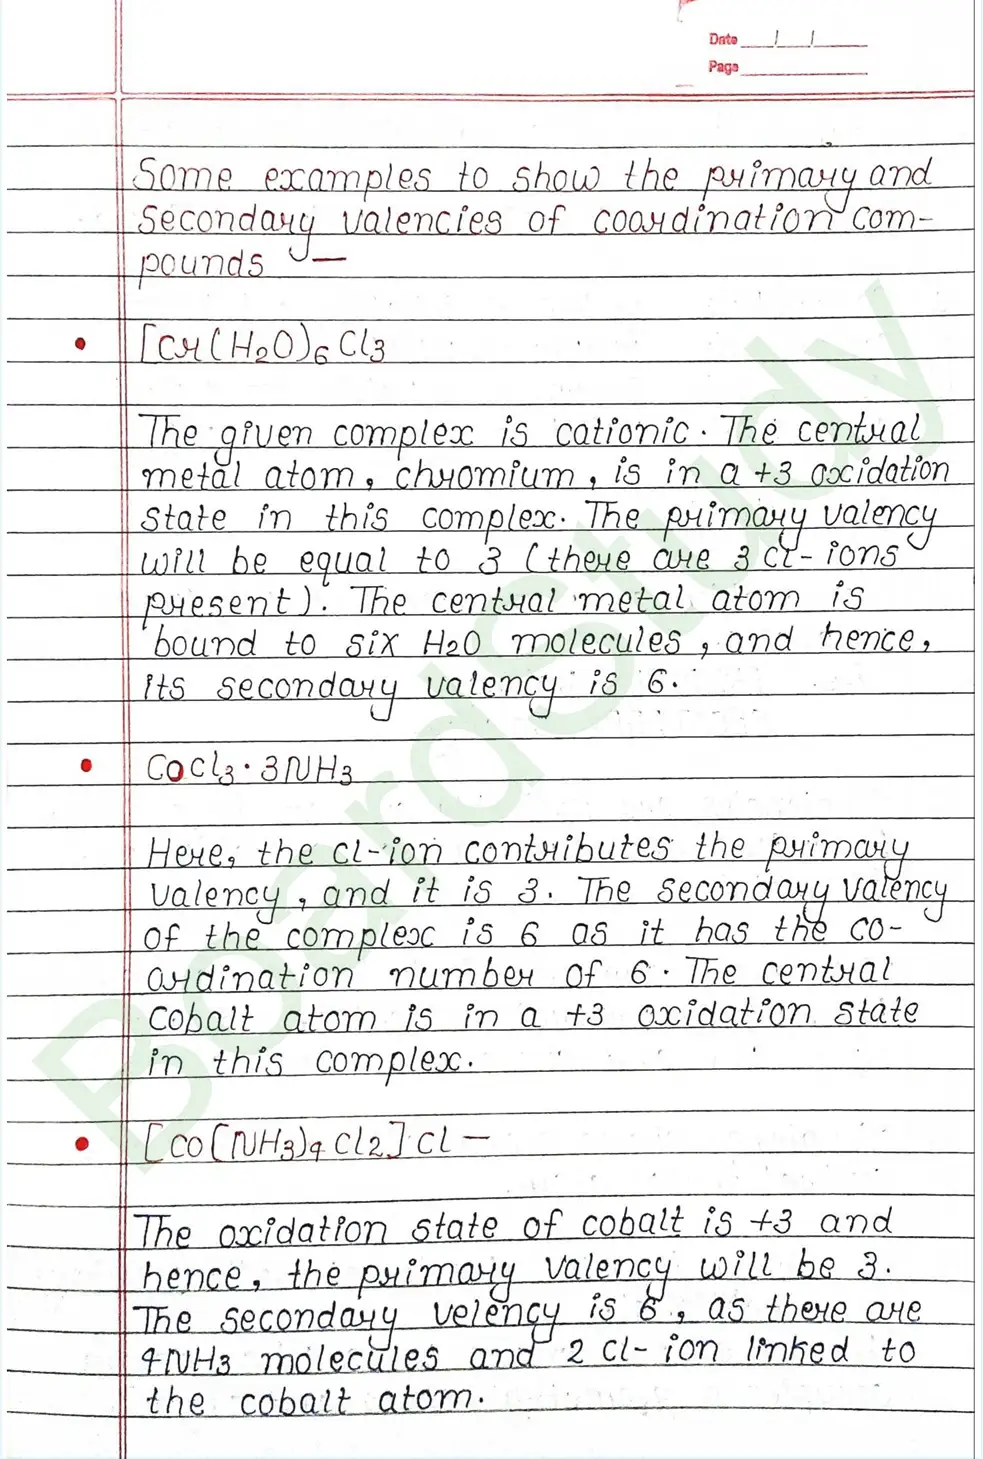 Date __/__/____
Page ________
Some examples to show the primary and
Secondary valencies of coordination com-
pounds —
• [Cr(H2O)6Cl3
The given complex is cationic. The central
metal atom, chromium, is in a +3 oxidation
state in this complex. The primary valency
will be equal to 3 (there are 3 Cl- ions
present). The central metal atom is
bound to six H2O molecules, and hence,
its secondary valency is 6.
• CoCl3·3NH3
Here, the Cl-ion contributes the primary
valency, and it is 3. The secondary valency
of the complex is 6 as it has the co-
ordination number of 6. The central
cobalt atom is in a +3 oxidation state
in this complex.
• [CO[NH3)4 Cl2]Cl —
The oxidation state of cobalt is +3 and
hence, the primary valency will be 3.
The secondary velency is 6, as there are
4NH3 molecules and 2 Cl- ion linked to
the cobalt atom.
BoardStudy